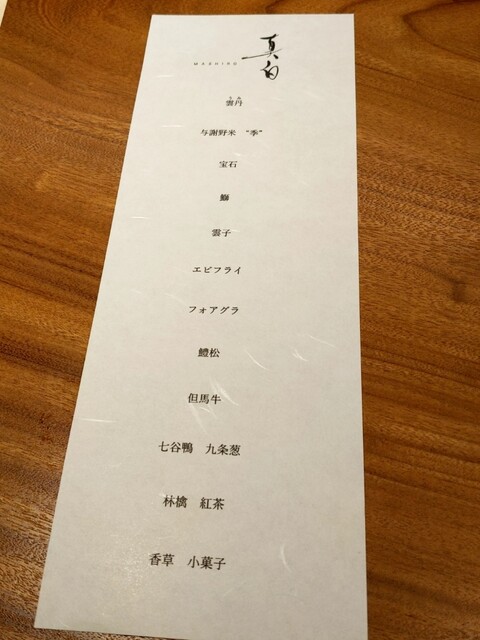 真白
MASHIRO
うに
雲丹
与謝野米 “季”
宝石
鰤
雲子
エビフライ
フォアグラ
鱧松
但馬牛
七谷鴨 九条葱
林檎 紅茶
香草 小菓子